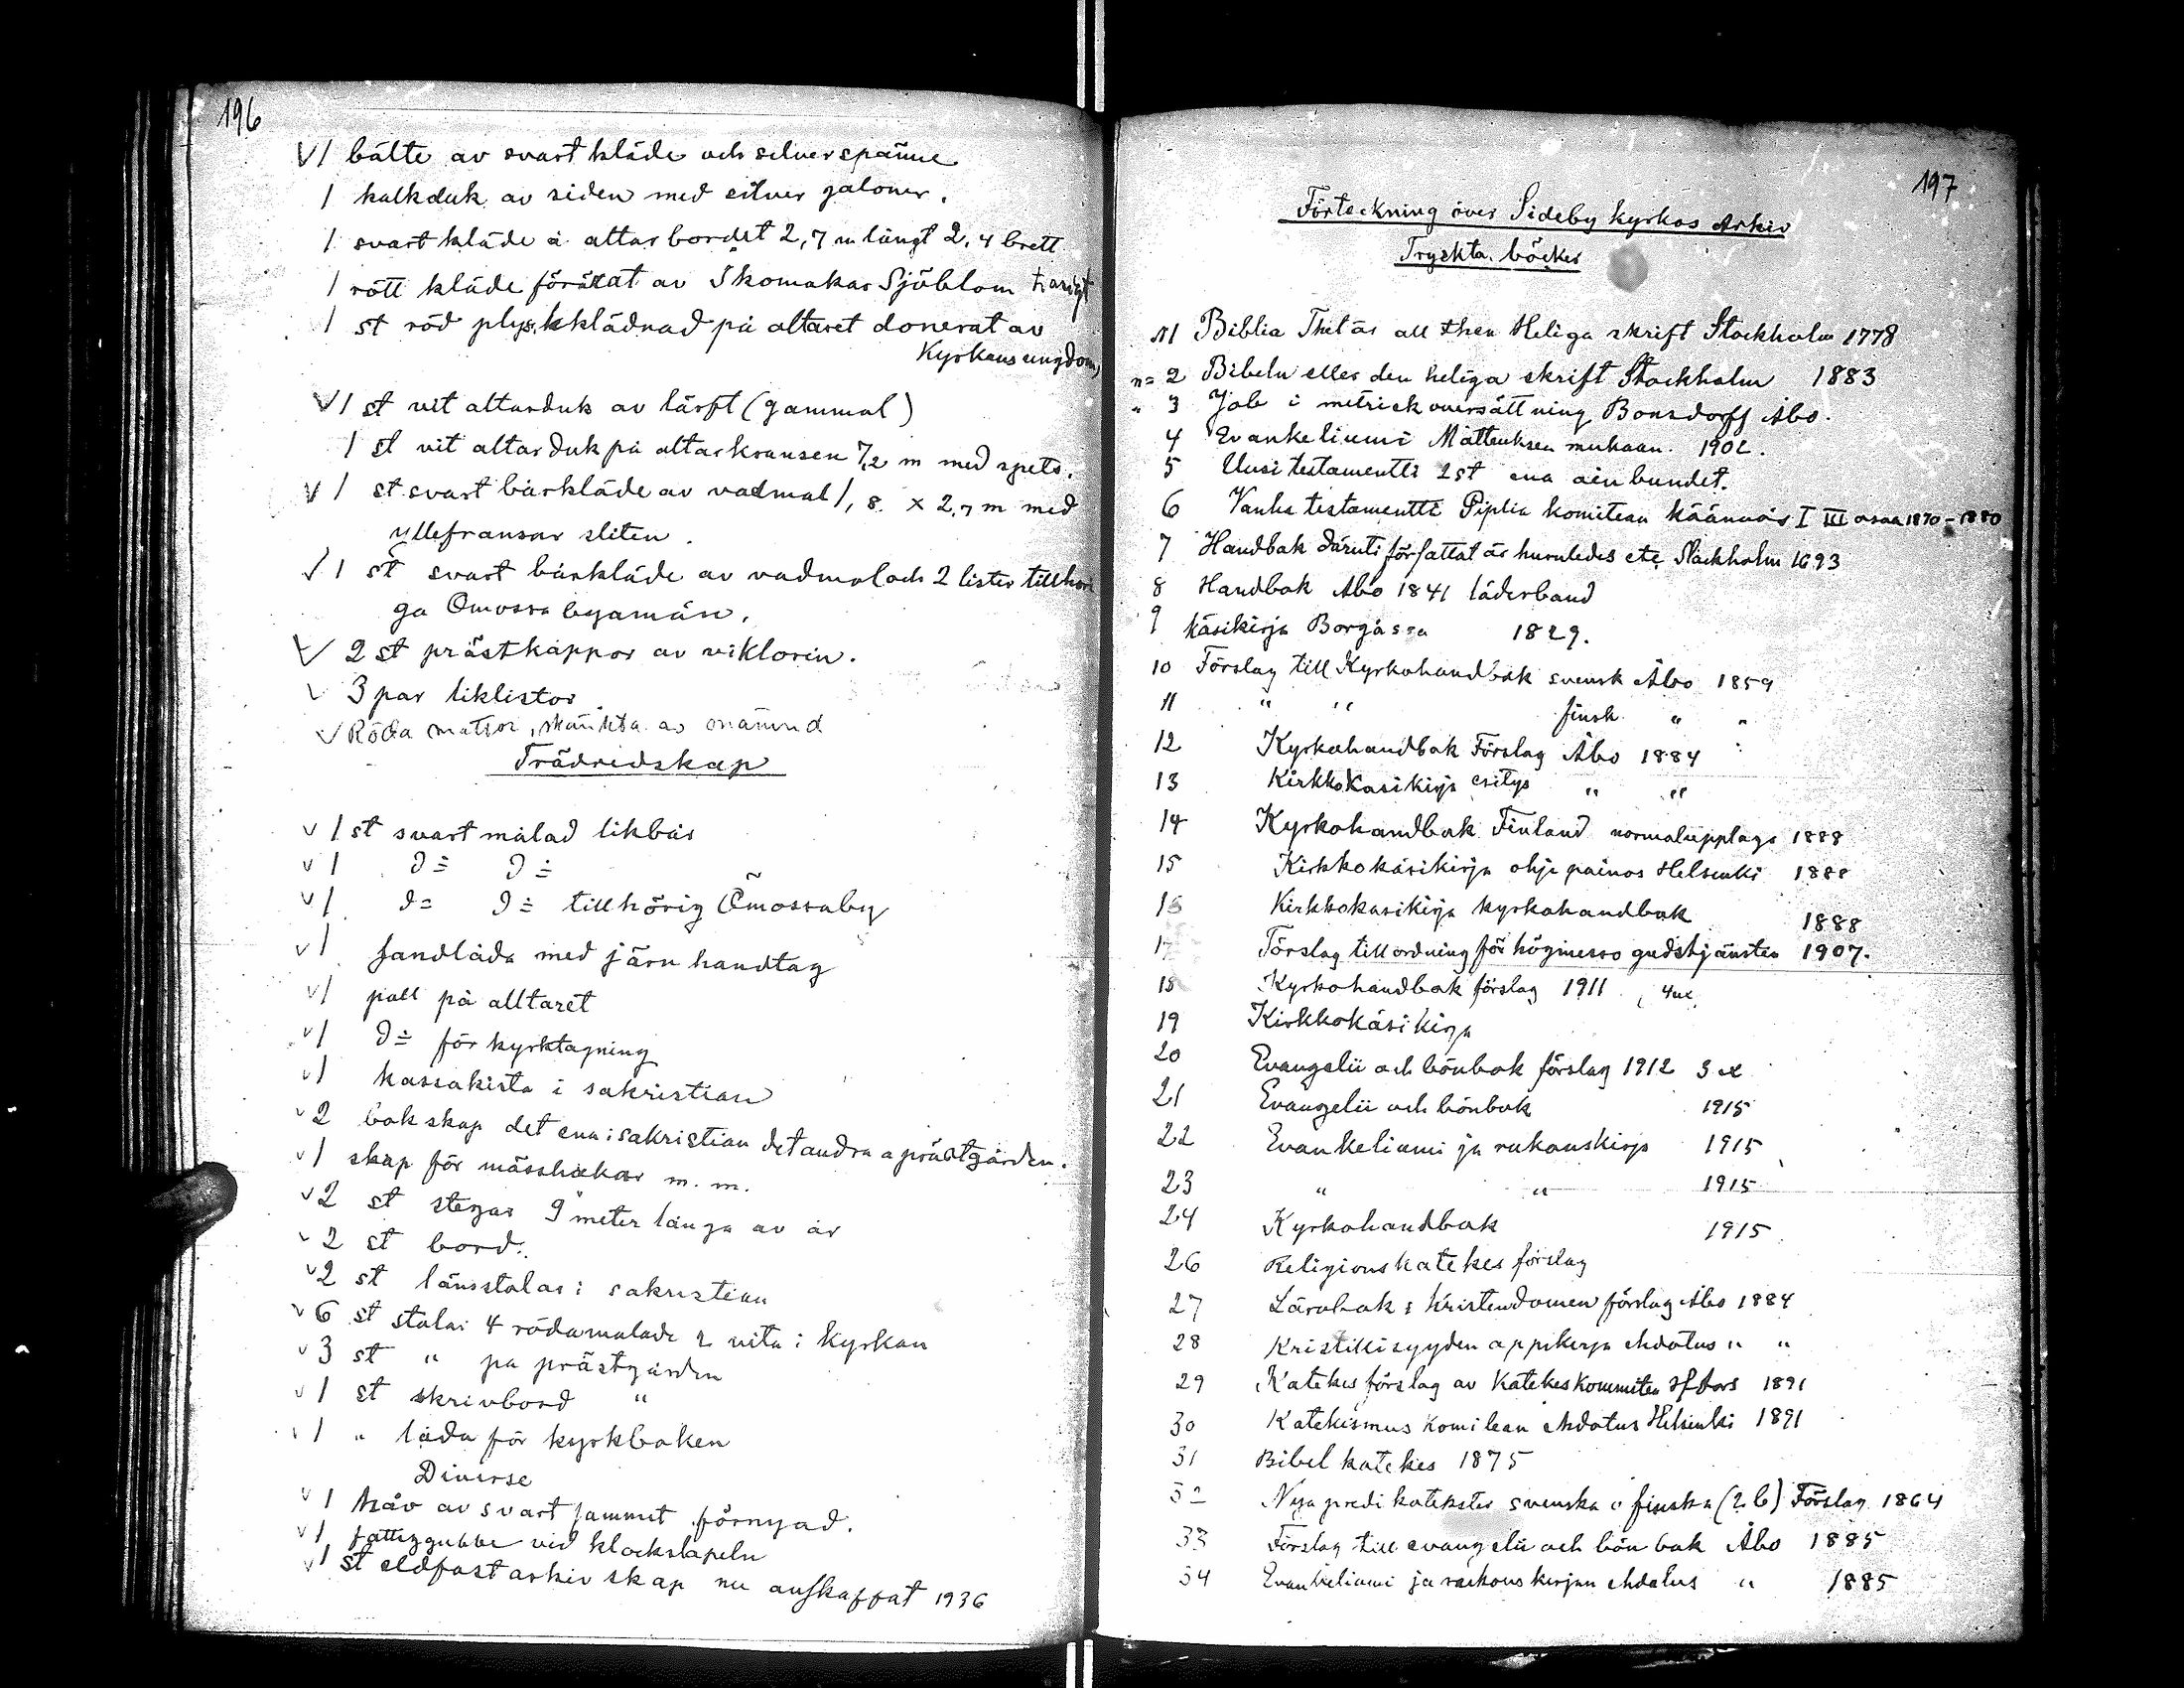 196
V 1 bälte av svart kläde och silverspänne
1 kalkduk av siden med silver galoner.
1 svart kläde å altarbordet 2,7 m långt 2,4 brett
1 rött kläde förärat av Skomakar Sjöblom
1 st röd plyschklädnad på altaret donerat av
Kyrkans ungdom,
V 1 st vit altarduk av lärft (gammal)
1 st vit altarduk på altarkransen 7,2 m med spets.
V 1 st svart bårkläde av vadmal 1,8 x 2,7 m med
yllefransar sliten.
V 1 st svart bårkläde av vadmal och 2 lister tillhöri
ga Ömossa byamän.
V 2 st prästkappor av viktorin.
V 3 par liklistor
V Röda mattor, skänkta av onämnd
Trädredskap
V 1 st svart målad likbår
V 1 D:o D:o
V 1 D:o D:o tillhörig Ömossaby
V 1 sandlåda med järn handtag
V 1 pall på alltaret
V 1 D:o för kyrktagning
V 1 kassakista i sakristian
V 2 bokskap det ena i sakristian det andra a prästgården.
V 1 skap för mässhakar m. m.
V 2 st stegar 9 meter långa av år
V 2 st bord.
V 2 st länsstolar i sakristian
V 6 st stolar 4 rödamalade 2 vita i kyrkan
V 3 st " pa prästgården
V 1 st skrivbord "
V 1 " låda för kyrkboken
Diverse
V 1 håv av svart sammet förnyad.
V 1 fattiggubbe vid klockstapeln
V 1 st eldfast arkiv skap nu anskaffat 1936
197
Förteckning över Sideby kyrkas Arkiv
Tryckta böcker
N1 Biblia Thet är all then Heliga skrift Stockholm 1778
n= 2 Bibeln eller den heliga skrift Stockholm 1883
" 3 Job i metrisk översättning Bonsdorff Åbo.
4 Evankeliumi Matteuksen mukaan. 1902.
5 Uusi testamentti 2 st ena oinbundet.
6 Vanha testamentti Piplia komitean käännös I III osaa 1870-1880
7 Handbok däruti författat är huruledes etc Stockholm 1693
8 Handbok Åbo 1841 läderband
9 Käsikirja Borgåssa 1829.
10 Förslag till Kyrkohandbok svensk Åbo 1859
11 " " finsk " "
12 Kyrkohandbok Förslag Åbo 1884
13 Kirkkokasikirja esitys " "
14 Kyrkohandbok Finland normalupplaga 1888
15 Kirkkokäsikirja ohje painos Helsinki 1888
16 Kirkkokasikirja kyrkohandbok 1888
17 Förslag till ordning för högmesso gudstjänsten 1907.
18 Kyrkohandbok förslag 1911 4 ex.
19 Kirkkokäsikirja
20 Evangelii och bönbok förslag 1912 3 ex
21 Evangelii och bönbok 1915
22 Evankeliumi ja rukouskirja 1915
23 " " 1915
24 Kyrkohandbok 1915
26 Religionskatekes förslag
27 Lärobok i Kristendomen förslag Åbo 1884
28 Kristillisyyden oppikirja ehdotus " "
29 Katekesförslag av Katekeskommiten Hfors 1891
30 Katekismus Komitean ehdotus Helsinki 1891
31 Bibel katekes 1875
32 Nya predikotexter svenska o finska (2 b) Förslag 1864
33 Förslag till evangelii och bön bok Åbo 1885
34 Evankeliumi ja raekous kirjan ehdatus " 1885